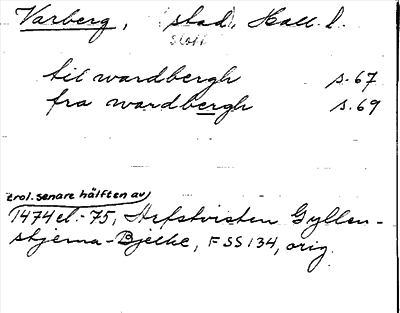 Varberg, stad, Hall. l.
slott
til wardbergh s. 67
fra wardbergh s. 69
trol. senare hälften av
1474 el. -75, Arfstvisten Gyllen-
stjerna-Bjelke, FSS 134, orig.